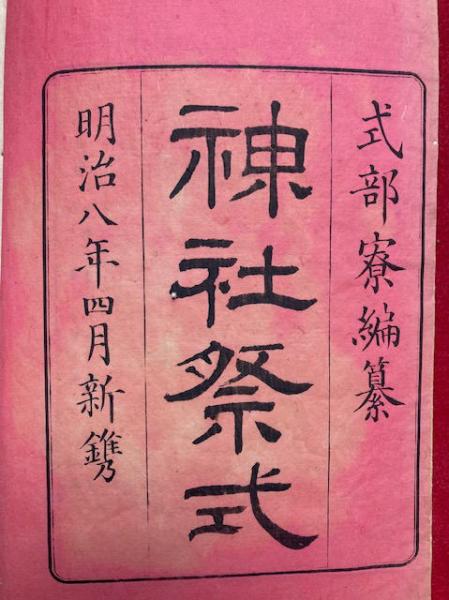 式部寮編纂
神社祭式
明治八年四月新鐫